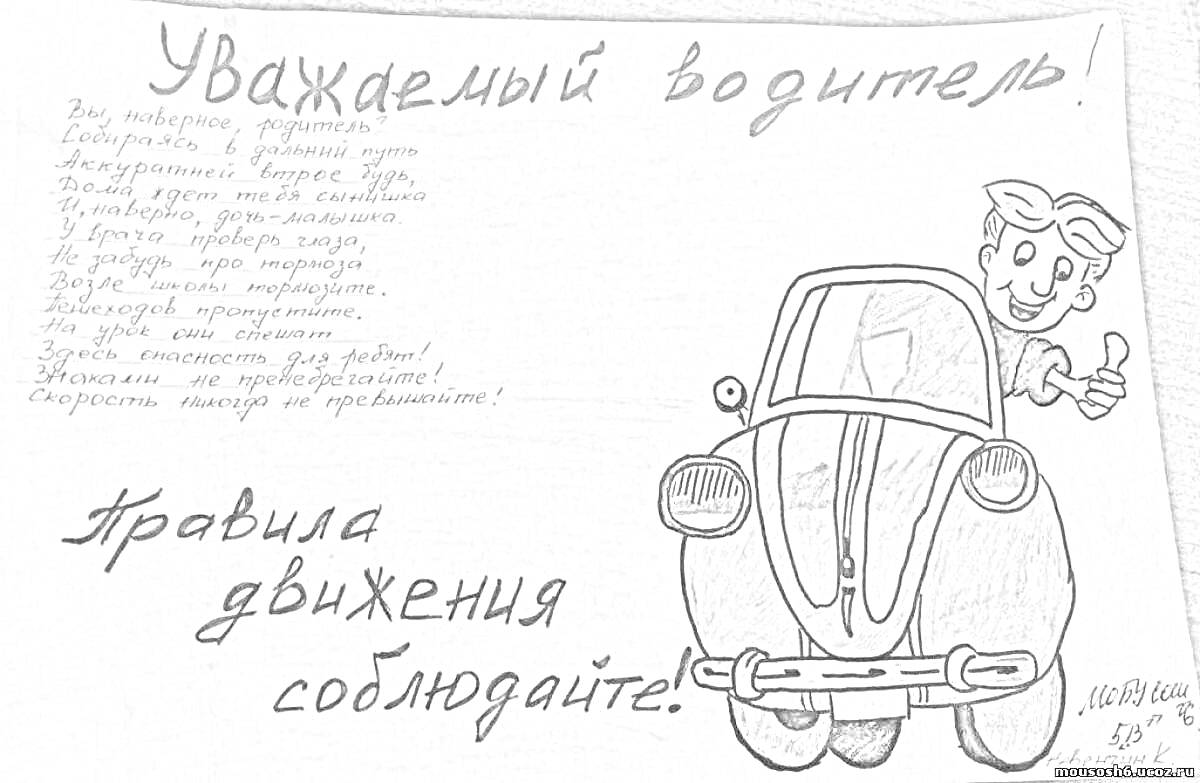 Уважаемый водитель!
Вы, наверное, родитель?
Собираясь в дальний путь
Аккуратней втрое будь,
Дома ждет тебя сынишка
И, наверно, дочь-малышка.
У врача проверь глаза,
Не забудь про тормоза
Возле школы тормозите.
Пешеходов пропустите.
На урок они спешат
Здесь опасность для ребят!
Знаками не пренебрегайте!
Скорость никогда не превышайте!
Правила
движения
соблюдайте!
МОБУ СОШ
5 "В"
К.
mousosh6.ucoz.ru